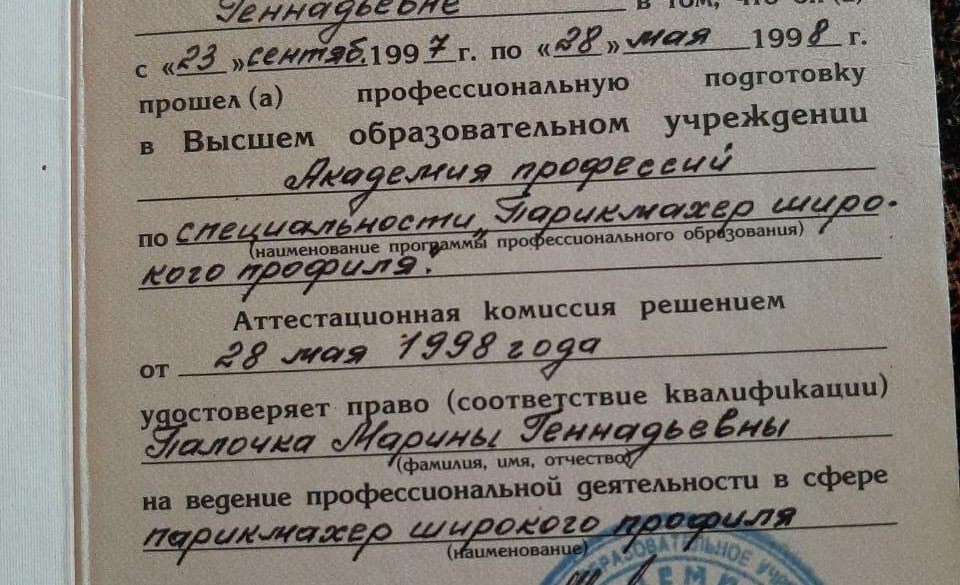 Геннадьевне в том, что он (а)
с «23» сентяб. 1997 г. по «28» мая 1998 г.
прошел (а) профессиональную подготовку
в Высшем образовательном учреждении
Академия профессий
по специальности „Парикмахер широ-
(наименование программы профессионального образования)
кого профиля"
Аттестационная комиссия решением
от 28 мая 1998 года
удостоверяет право (соответствие квалификации)
Палочка Марины Геннадьевны
(фамилия, имя, отчество)
на ведение профессиональной деятельности в сфере
парикмахер широкого профиля
(наименование)